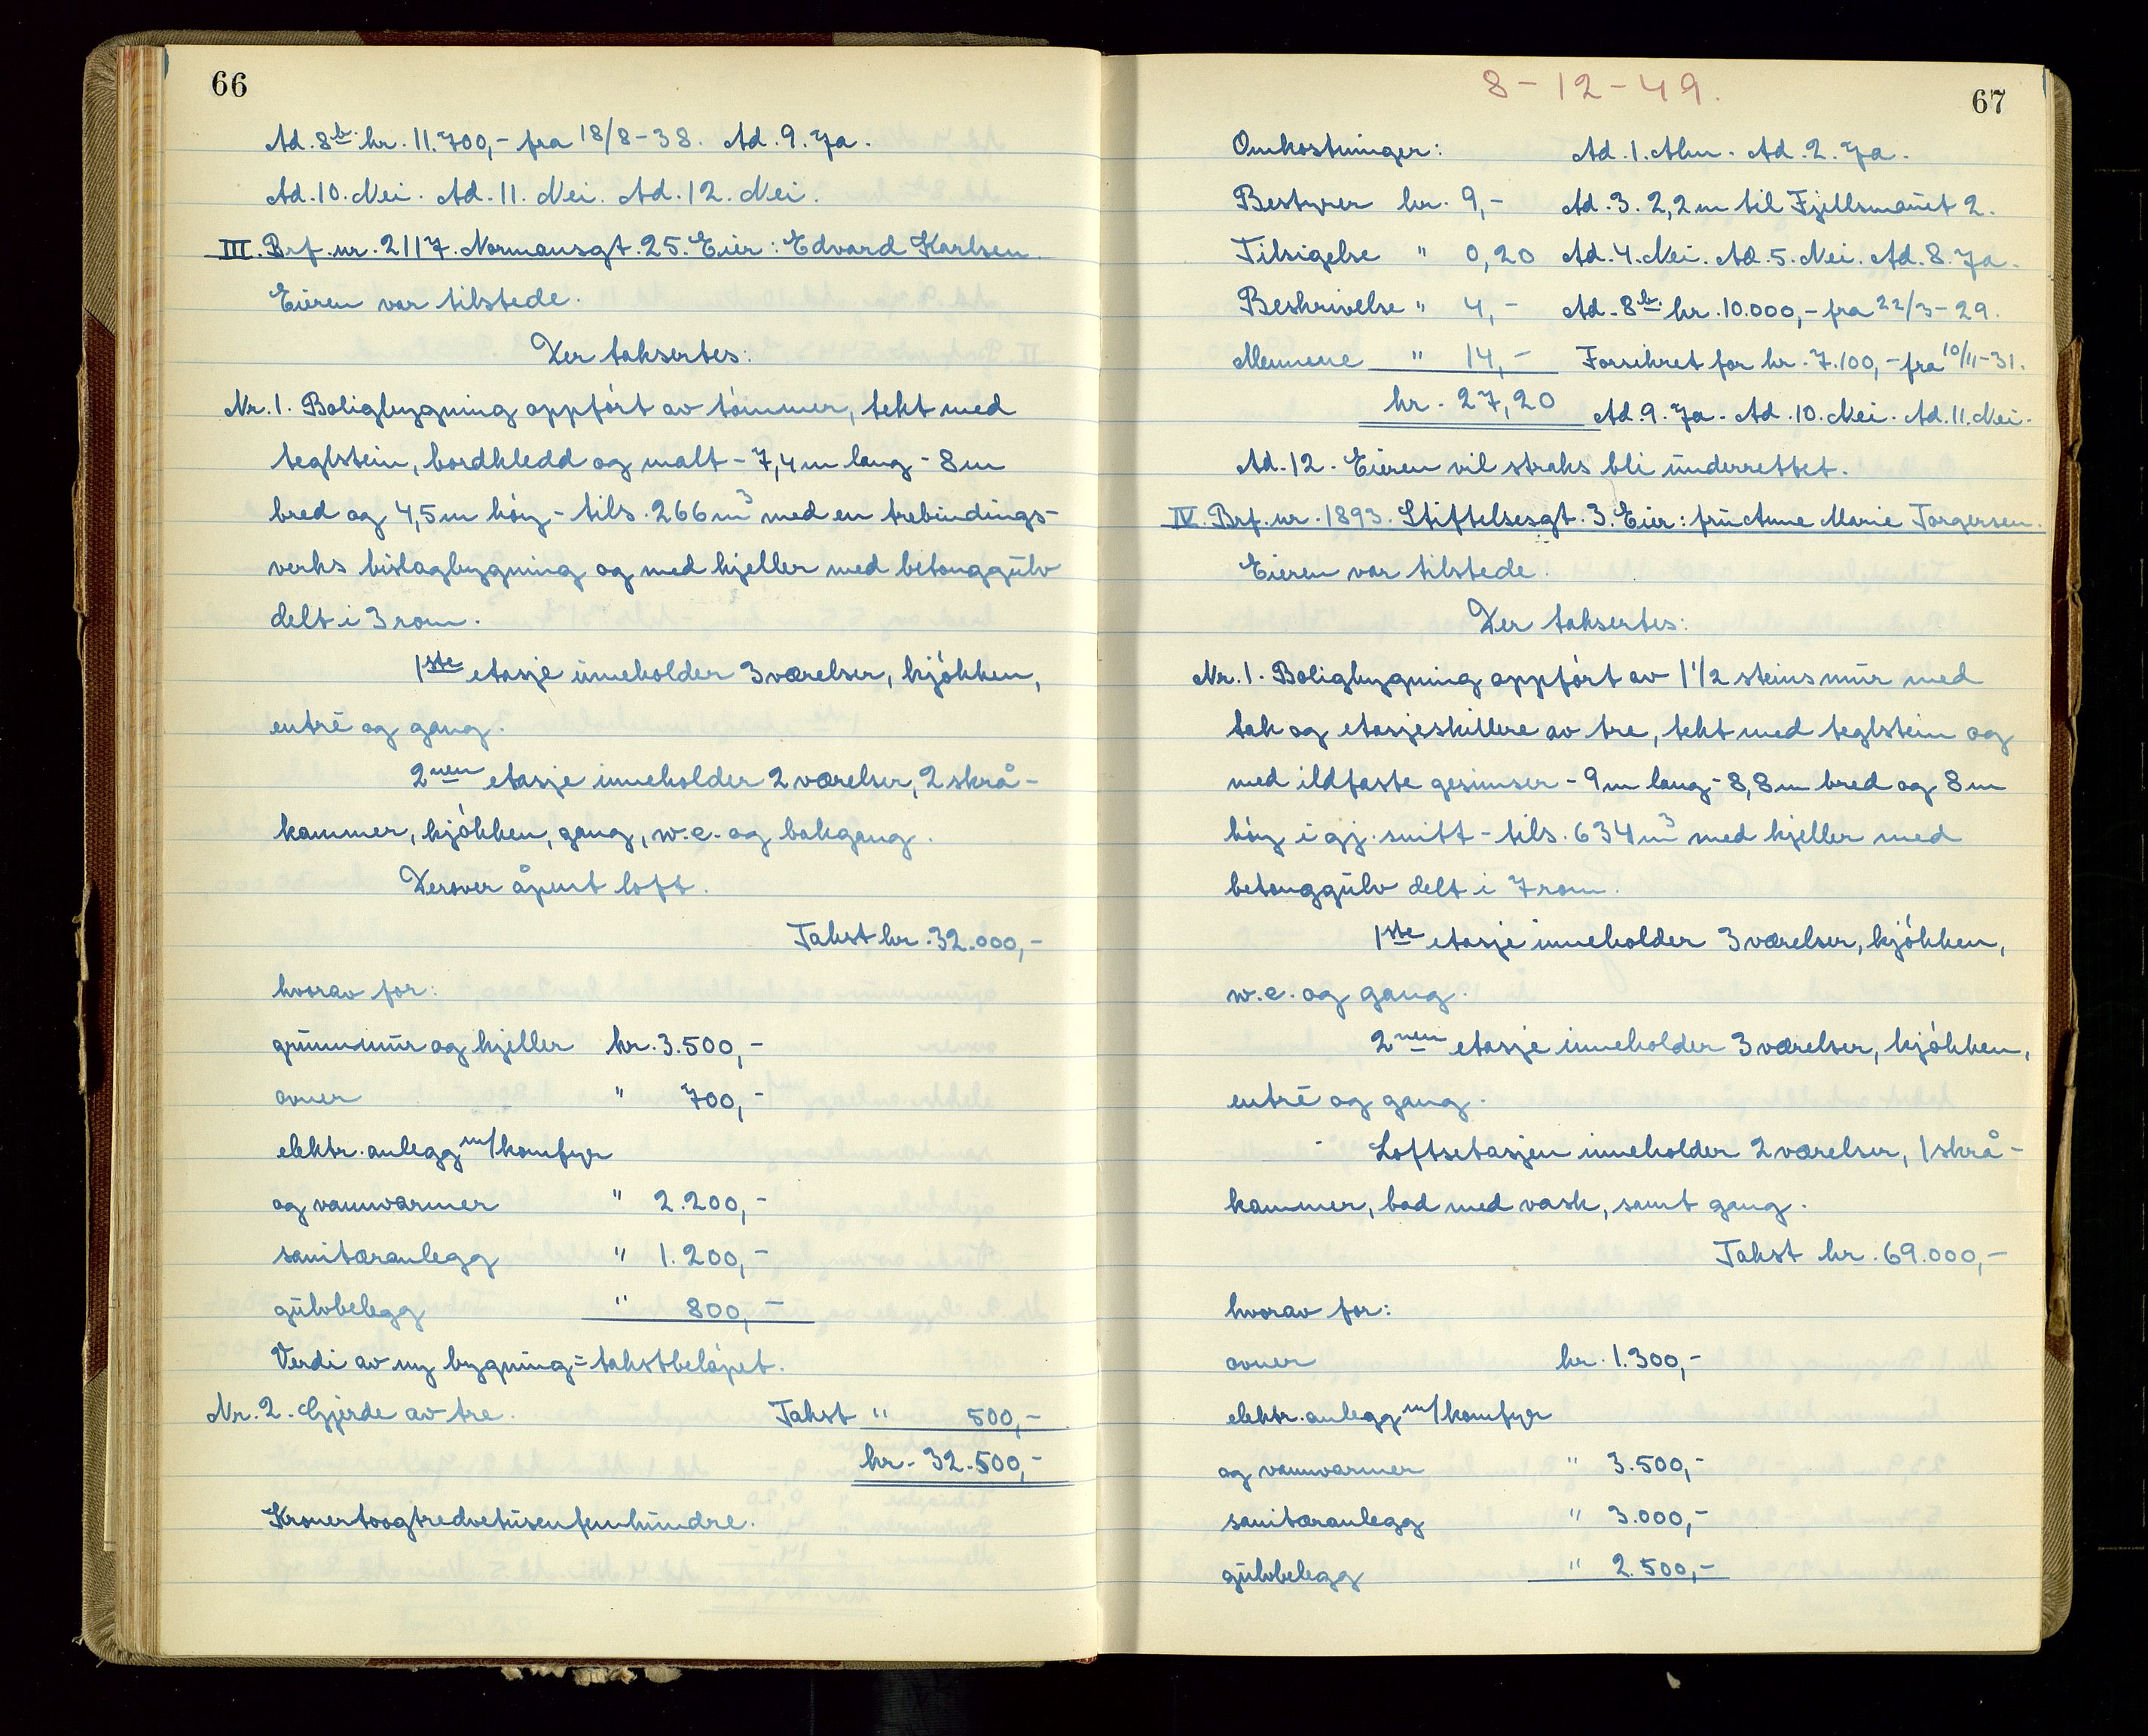 66
Ad. 8b. kr. 11.700,- fra 18/8-38. Ad. 9. Ja.
Ad. 10. Nei. Ad. 11. Nei. Ad. 12. Nei.
III. Brf. nr. 2117. Normansgt. 25. Eier: Edvard Karlsen.
Eieren var tilstede.
Der taksertes:
Nr. 1. Boligbygning oppført av tømmer, tekt med
teglstein, bordkledd og malt - 7,4 m lang - 8 m
bred og 4,5 m høy - tils. 266 m³ med en trebindings-
verks bislagbygning og med kjeller med betonggulv
delt i 3 rom.
1ste etasje inneholder 3 værelser, kjøkken,
entré og gang.
2nen etasje inneholder 2 værelser, 2 skrå-
kammer, kjøkken, gang, w.c. og bakgang.
Derover åpent loft.
Takst kr. 32.000,-
hvorav for:
grunnmur og kjeller kr. 3.500,-
ovner " 700,-
elektr. anlegg m/komfyr
og vannvarmer " 2.200,-
sanitæranlegg " 1.200,-
gulvbelegg " 800,-
Verdi av ny bygning = takstbeløpet.
Nr. 2. Gjerde av tre. Takst " 500,-
kr. 32.500,-
Kronertoogtredvetusenfemhundre.
8-12-49.
67
Omkostninger: Ad. 1. Alm. Ad. 2. Ja.
Bestyrer kr. 9,- Ad. 3. 2,2 m til Fjellsmauet 2.
Tilsigelse " 0,20 Ad. 4. Nei. Ad. 5. Nei. Ad. 8. Ja.
Beskrivelse " 4,- Ad. 8b. kr. 10.000,- fra 22/3-29.
Mennene " 14,- Forsikret for kr. 7.100,- fra 10/11-31.
kr. 27,20 Ad. 9. Ja. Ad. 10. Nei. Ad. 11. Nei.
Ad. 12. Eieren vil straks bli underrettet.
IV. Brf. nr. 1893. Stiftelsesgt. 3. Eier: fru Anne Marie Torgersen.
Eieren var tilstede.
Der taksertes:
Nr. 1. Boligbygning oppført av 1 1/2 steins mur med
tak og etasjeskillere av tre, tekt med teglstein og
med ildfaste gesimser - 9 m lang - 8,8 m bred og 8 m
høy i gj. snitt - tils. 634 m³ med kjeller med
betonggulv delt i 7 rom.
1ste etasje inneholder 3 værelser, kjøkken,
w.c. og gang.
2nen etasje inneholder 3 værelser, kjøkken,
entré og gang.
Loftsetasjen inneholder 2 værelser, 1 skrå-
kammer, bad med vask, samt gang.
Takst kr. 69.000,-
hvorav for:
ovner kr. 1.300,-
elektr. anlegg m/komfyr
og vannvarmer " 3.500,-
sanitæranlegg " 3.000,-
gulvbelegg " 2.500,-